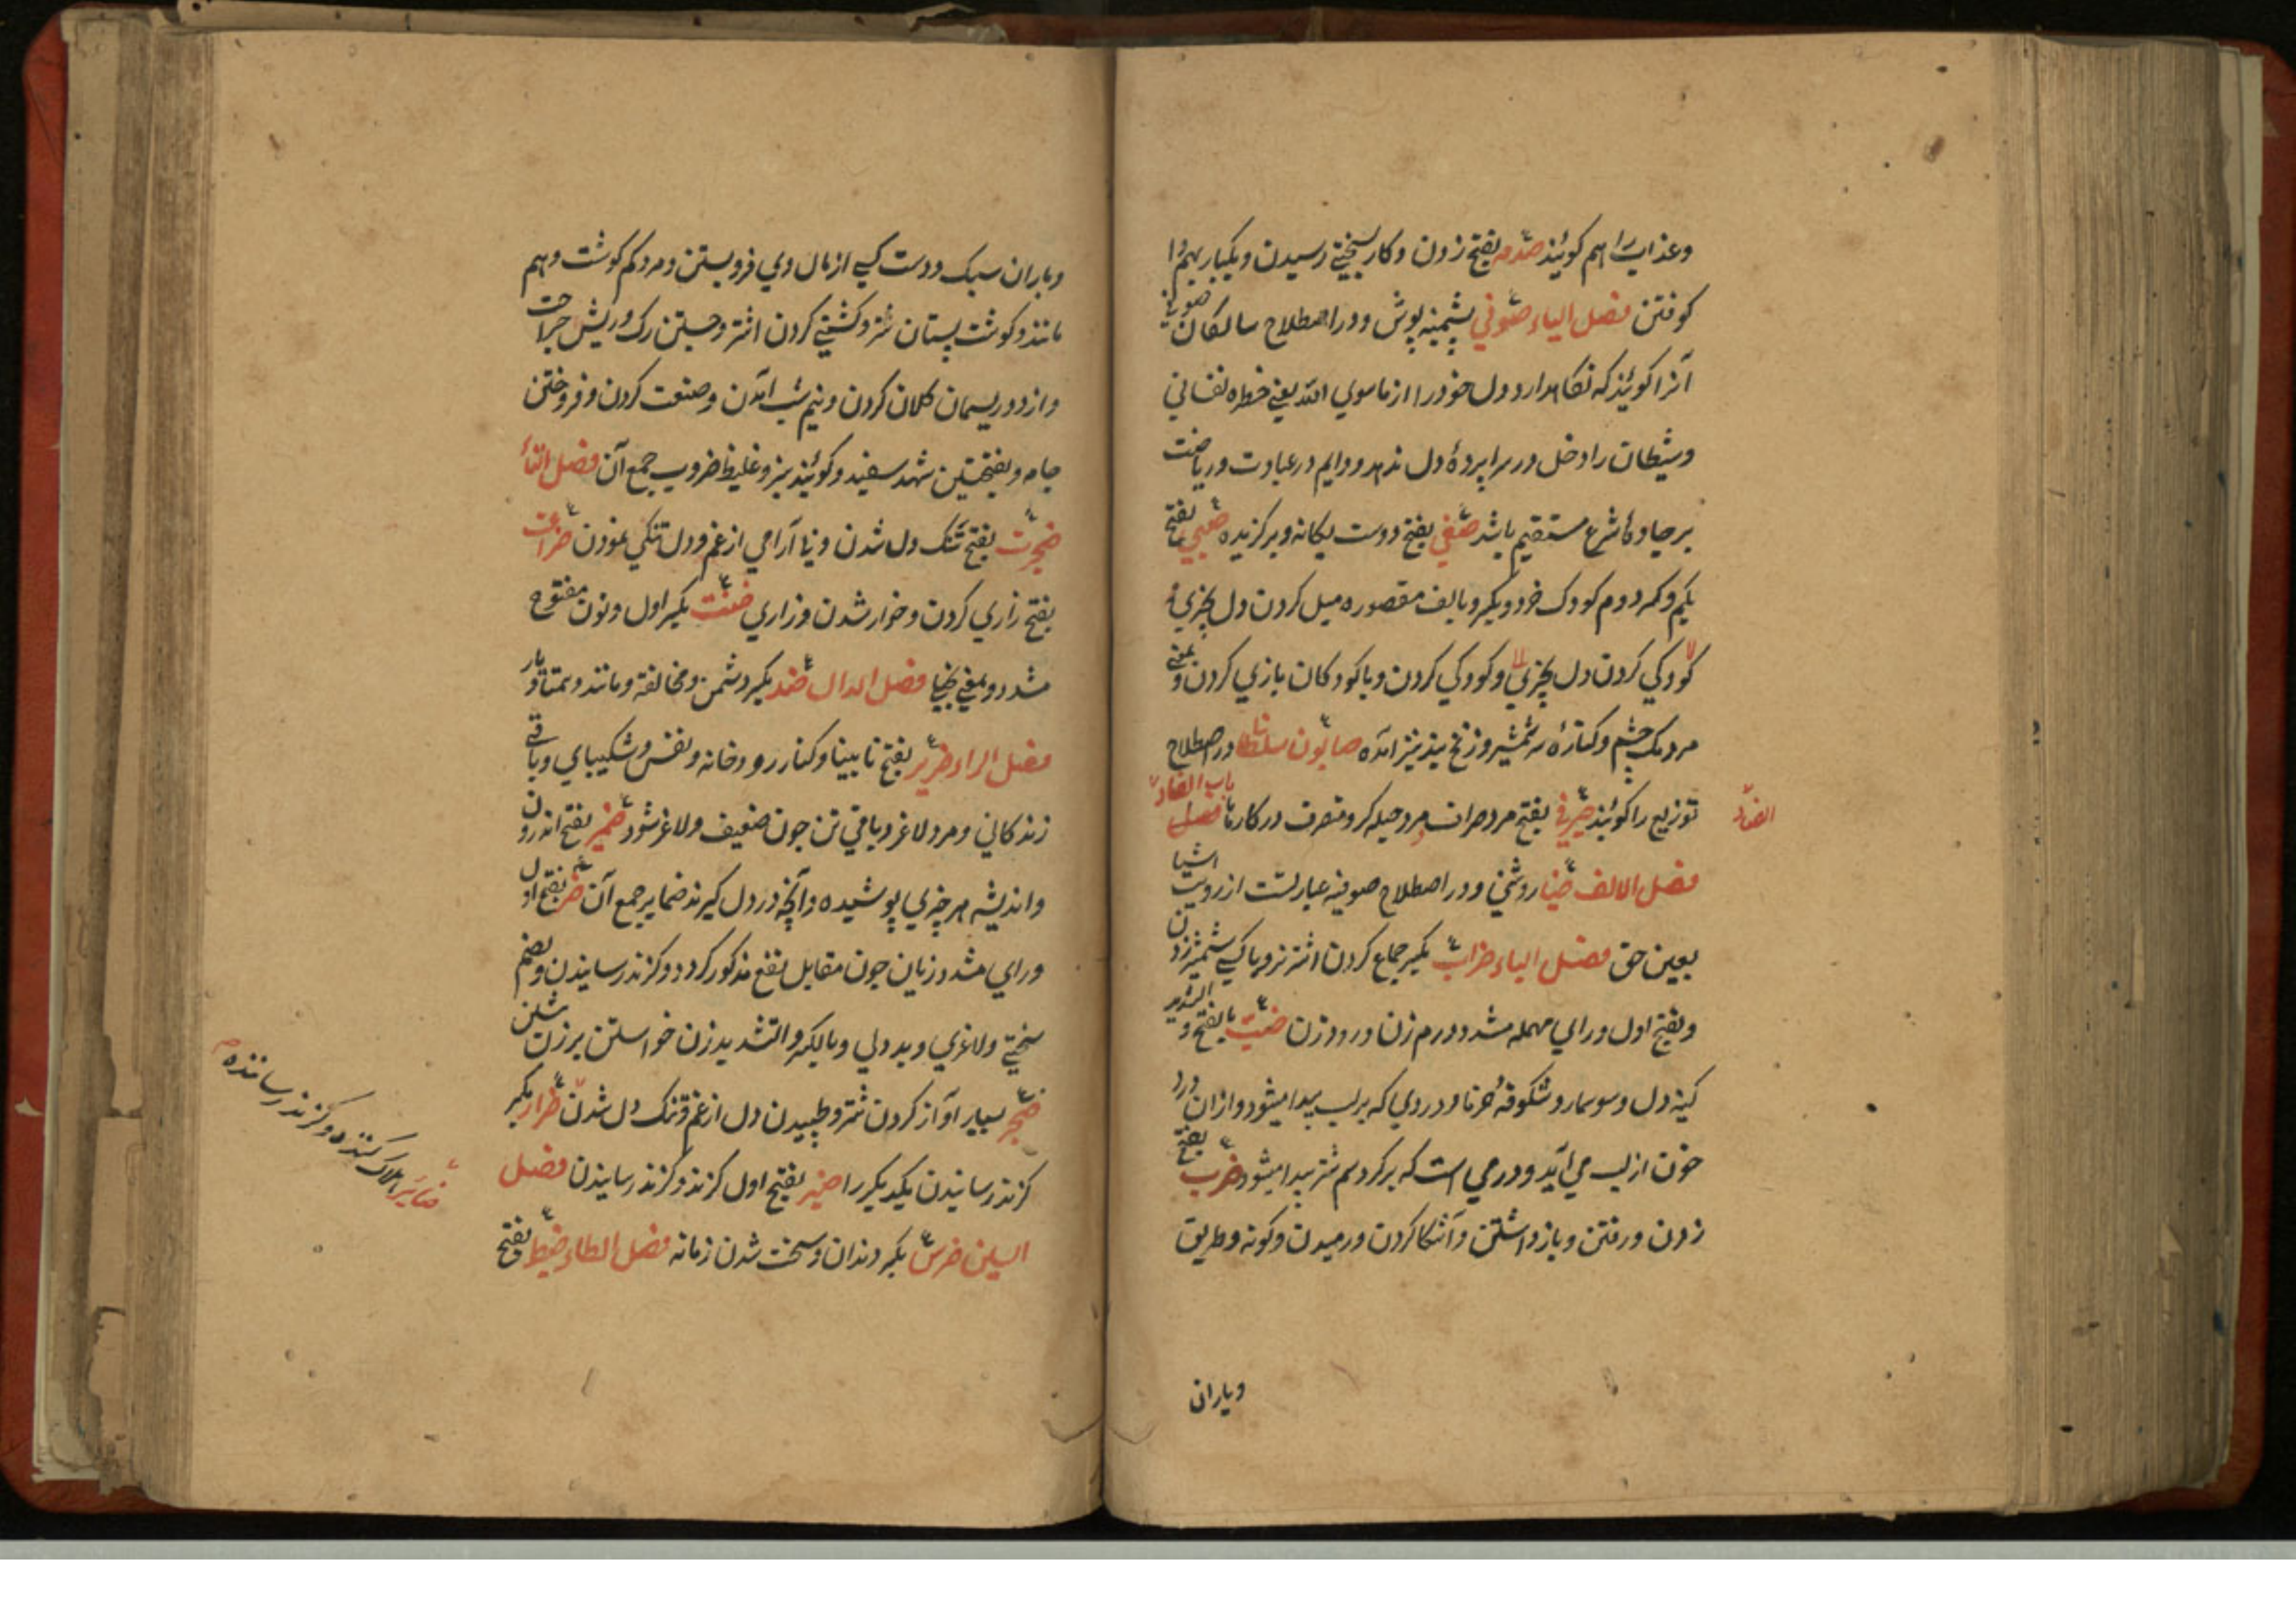 وعذاب را هم گویند صدمه بفتح زدن وکار بسختی رسیدن ویکبار بهم وا
کوفتن فصل الیاء صوفی پشمینه پوش ودر اصطلاح سالکان صوفی
آنرا گویند که نگاهدارد دل خودرا از ماسوی الله یعنی خطره نفسانی
وشیطان را دخل در سراپردهٔ دل ندهد ودایم در عبادت وریاضت
بر جادهٔ شرع مستقیم باشد صفی بفتح دوست یگانه وبرگزیده صبی بفتح
یکم وکسر دوم کودک خرد وبکسر وبالف مقصوره میل کردن دل بچیزی
کودکی کردن دل بچیزی وکودکی کردن وبا کودکان بازی کردن وبمعنی
مردمک چشم وکنارهٔ سر شمشیر وزنخ نیز آمده صابون سلطان در اصطلاح
توزیع را گویند صیرفی بفتح مرد صراف ومرد حیله گر ومتصرف در کارها باب الضاد
الضاد
فصل الالف ضیا روشنی ودر اصطلاح صوفیه عبارتست از رویت اشیا
بعین حق فصل الباء ضراب بکسر جماع کردن اشتر نر وبا کسی شمشیر زدن
وبفتح اول ورای مهمله مشدد درم زن ورود زن ضب بالفتح والتشدید
کینه دل وسوسمار وشکوفهٔ خرما ودردی که بر لب پیدا میشود واز ان درد
خون از لب می آید وورمی است که بر گرد سم شتر پیدا میشود ضرب بفتح
زدن ورفتن وباز داشتن وآشکار کردن ورمیدن وگونه وطریق
وباران
وباران سبک ودست کسی از مال وی فرو بستن ومرد کم گوشت وهم
مانند وگوشت پستان شتر وگشنی کردن اشتر وجستن رگ وریش جراحت
واز دو ریسمان کلان کردن ونیم شب آمدن وصنعت کردن وفروختن
جامه وبفتحتین شهد سفید وگویند نیز وغلیظ ضروب جمع آن فصل التاء
ضجرت بفتح تنک دل شدن ونا آرامی از غم ودل تنگی نمودن ضراعت
بفتح زاری کردن وخوار شدن وزاری ضنت بکسر اول ونون مفتوح
مشدد وبمعنی بخیلی فصل الدال ضد بکسر دشمن ومخالفة ومانند وهمتا ویار
فصل الراء ضریر بفتح نابینا وکنار رودخانه ونفس وشکیبای وباقی
زندگانی ومرد لاغر وباقی تن چون ضعیف ولاغر شود ضمیر بفتح اندرون
واندیشه هر چیزی پوشیده وآنچه در دل گیرند ضمایر جمع آن ضر بفتح اول
ورای مشدد زیان چون مقابل نفع مذکور گردد وگزند رسانیدن وبضم
سختی ولاغری وبد دلی وبالکسر والتشدید زن خواستن بر زن پیشین
ضجر بسیار آواز کردن شتر وطپیدن دل از غم وتنک دل شدن ضرار بکسر
گزند رسانیدن یکدیگر را ضیر بفتح اول گزند وگزند رسانیدن فصل
السین ضرس بکسر دندان وسخت شدن زمانه فصل الطاء ضبط بفتح
ضایر هلاک کننده وگزند رساننده